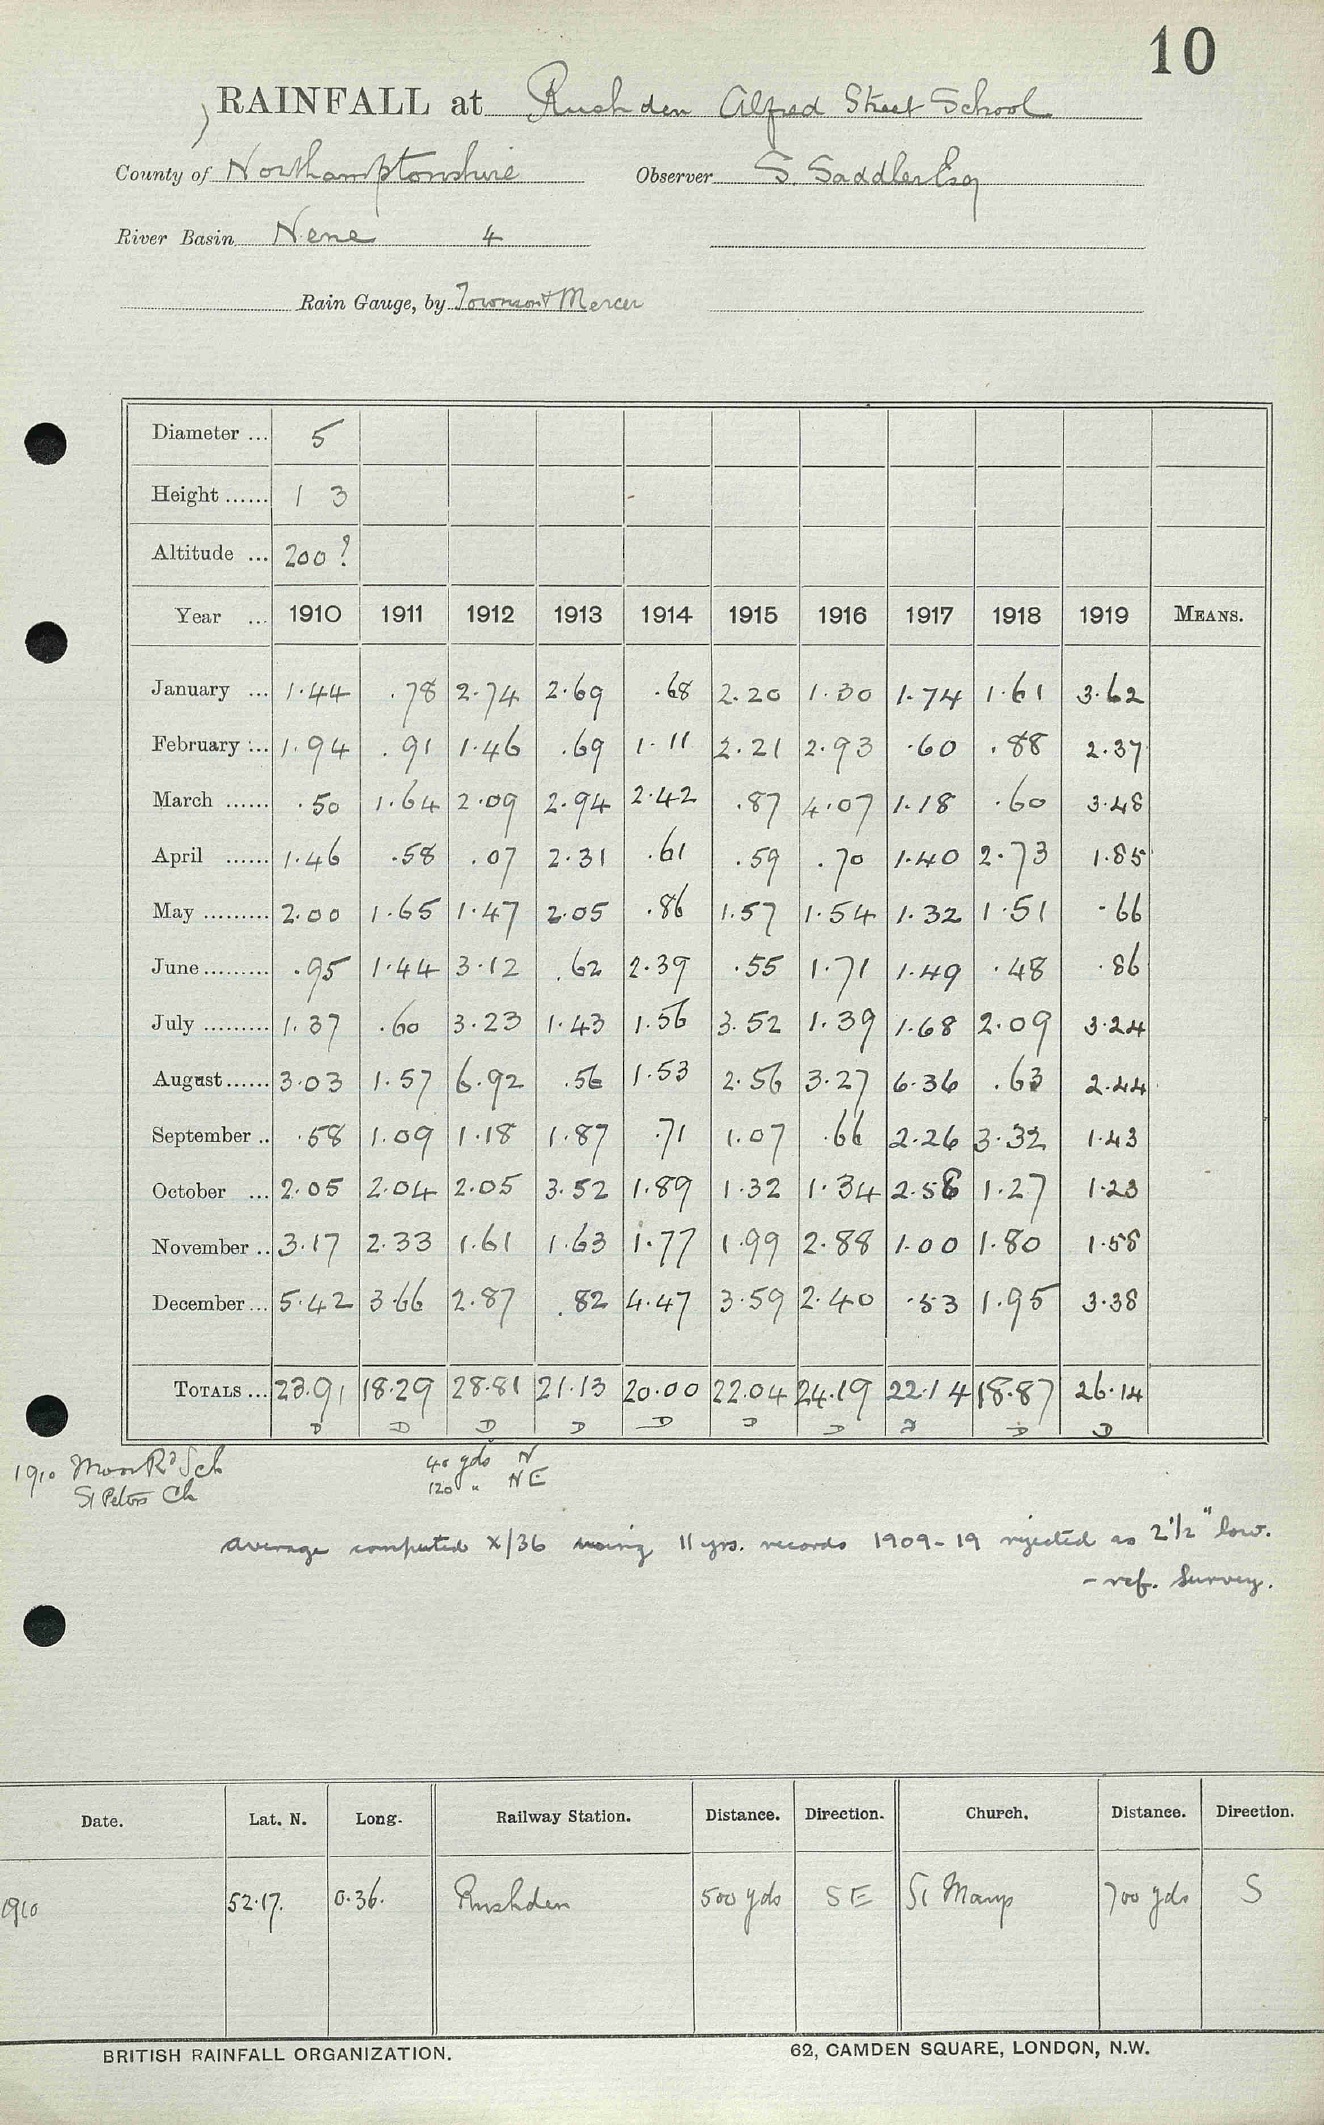 10
RAINFALL at Rushden Alfred Street School
County of Northamptonshire Observer S. Saddler Esq
River Basin Nene 4
Rain Gauge, by Townson & Mercer
Diameter ... 5
Height ...... 1 3
Altitude ... 200?
Year ... 1910 1911 1912 1913 1914 1915 1916 1917 1918 1919 MEANS.
January ... 1.44 .78 2.74 2.69 .68 2.20 1.30 1.74 1.61 3.62
February ... 1.94 .91 1.46 .69 1.11 2.21 2.93 .60 .88 2.37
March ...... .50 1.64 2.09 2.94 2.42 .87 4.07 1.18 .60 3.48
April ...... 1.46 .58 .07 2.31 .61 .59 .70 1.40 2.73 1.85
May ......... 2.00 1.65 1.47 2.05 .86 1.57 1.54 1.32 1.51 .66
June ......... .95 1.44 3.12 .62 2.39 .55 1.71 1.49 .48 .86
July ......... 1.37 .60 3.23 1.43 1.56 3.52 1.39 1.68 2.09 3.24
August ...... 3.03 1.57 6.92 .56 1.53 2.56 3.27 6.36 .63 2.44
September .. .58 1.09 1.18 1.87 .71 1.07 .66 2.26 3.32 1.43
October ... 2.05 2.04 2.05 3.52 1.89 1.32 1.34 2.58 1.27 1.23
November .. 3.17 2.33 1.61 1.63 1.77 1.99 2.88 1.00 1.80 1.58
December ... 5.42 3.66 2.87 .82 4.47 3.59 2.40 .53 1.95 3.38
TOTALS ... 23.91 18.29 28.81 21.13 20.00 22.04 24.19 22.14 18.87 26.14
D D D D D D D D D D
1910 Moor Rd Sch 40 yds N
St Peters Ch 120 " NE
average computed x/36 using 11 yrs. records 1909-19 rejected as 2 1/2" low.
- ref. Survey.
Date. Lat. N. Long. Railway Station. Distance. Direction. Church. Distance. Direction.
1910 52.17. 0.36. Rushden 500 yds SE St Marys 700 yds S
BRITISH RAINFALL ORGANIZATION. 62, CAMDEN SQUARE, LONDON, N.W.